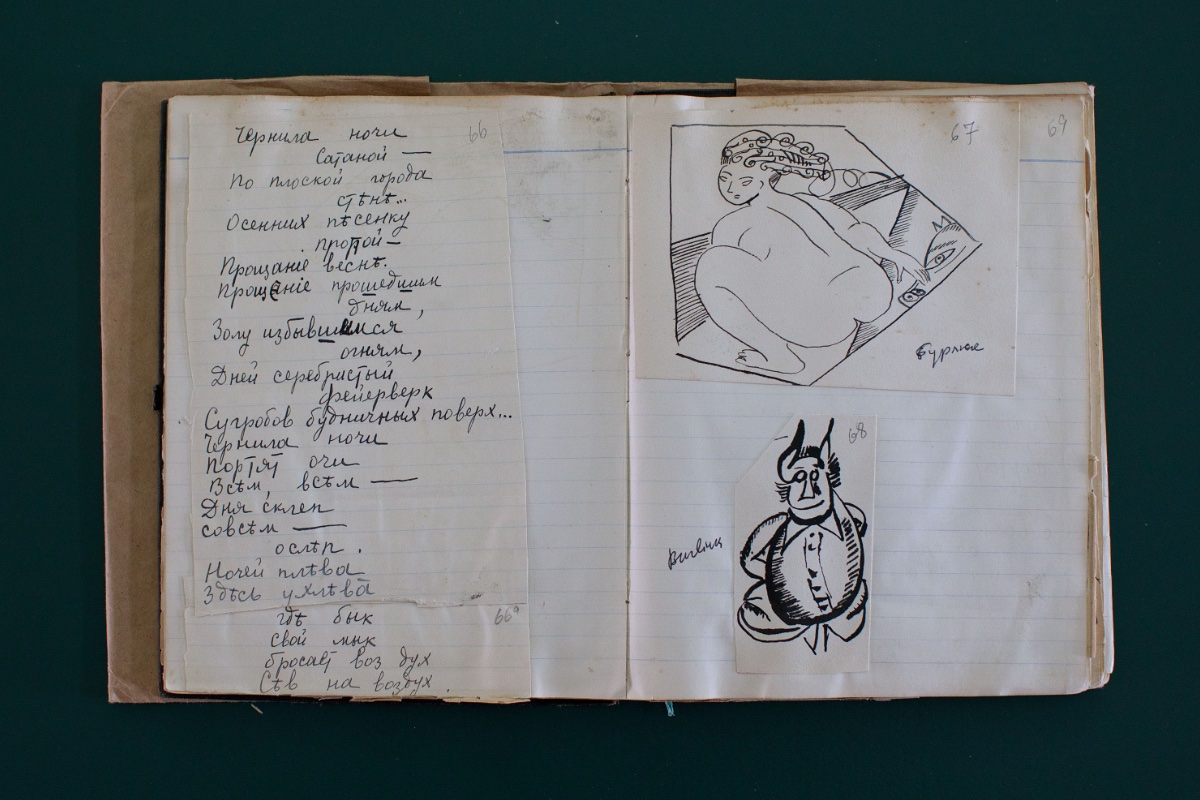 66
Чернила ночи
Сатаной —
По плоской города
стѣнѣ...
Осенних пѣсенку
пропой —
Прощаніе веснѣ.
Прощеніе прошедшим
дням,
Золу избывшимся
огням,
Дней серебристый
фейерверк
Сугробов будничных поверх...
Чернила ночи
Портят очи
Всѣм, всѣм —
Дня склеп
совсѣм —
ослѣп.
Ночей плѣва
Здѣсь у хлѣва
66а
гдѣ бык
свой мык
бросает воз дух
Сѣв на воздух.
67
69
бурлюк
68